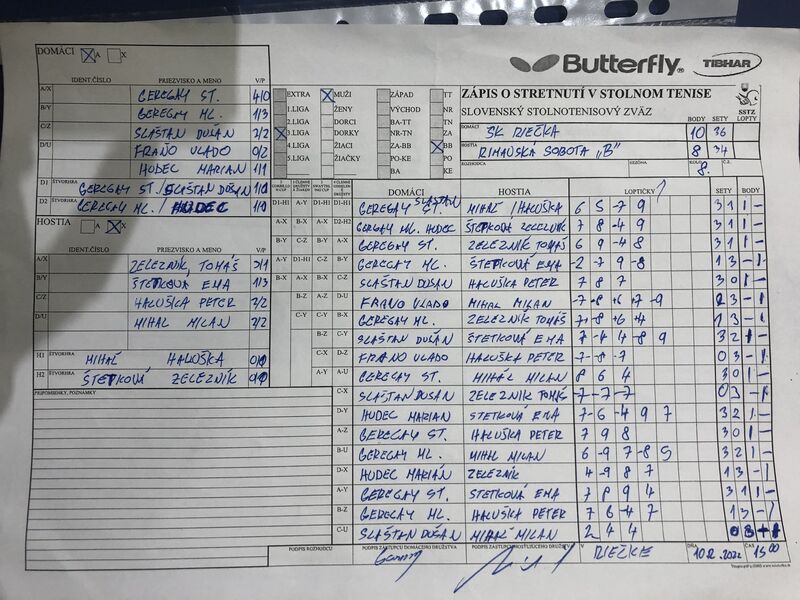 DOMÁCI A X
Butterfly
TIBHAR
IDENT.ČÍSLO PRIEZVISKO A MENO V/P
A/X GEREGAY ST. 4/0
B/Y GEREGAY ML. 1/3
C/Z SLAŠTAN DUŠAN 2/2
D/U FRAŇO VLADO 0/2
HUDEC MARIAN 1/1
D1 ŠTVORHRA GEREGAY ST./SLAŠTAN DUŠAN 1/0
D2 ŠTVORHRA GEREGAY ML./HUDEC 1/0
HOSTIA A X
IDENT.ČÍSLO PRIEZVISKO A MENO V/P
A/X ŽELEZNÍK, TOMÁŠ 3/1
B/Y ŠTETKOVÁ EMA 1/3
C/Z HALUŠKA PETER 2/2
D/U MIHAĽ MILAN 2/2
H1 ŠTVORHRA MIHAĽ HALUŠKA
H2 ŠTVORHRA ŠTETKOVÁ ŽELEZNÍK
PRIPOMIENKY, POZNÁMKY
EXTRA MUŽI ZÁPAD TT
1.LIGA ŽENY VÝCHOD NR
2.LIGA DORCI BA-TT TN
3.LIGA DORKY NR-TN ZA
4.LIGA ŽIACI ZA-BB BB
5.LIGA ŽIAČKY PO-KE PO
BA KE
ZÁPIS O STRETNUTÍ V STOLNOM TENISE
SLOVENSKÝ STOLNOTENISOVÝ ZVÄZ
SSTZ
BODY SETY LOPTY
DOMÁCI SK RIEČKA 10 36
HOSTIA RIMAVSKÁ SOBOTA „B" 8 34
ROZHODCA SEZÓNA KOLO 8. Č.Z.
DOMÁCI HOSTIA LOPTIČKY SETY BODY
D1-H1 GEREGAY ST. SLAŠTAN MIHAĽ /HALUŠKA 6 5 -7 9 3 1 1 -
GERGAY ML. HUDEC ŠTEPKOVÁ ZELEZNÍK 7 8 -4 9 3 1 1 -
GEREGAY ST. ŽELEZNÍK TOMÁŠ 6 9 -4 8 3 1 1 -
GEREGAY ML. ŠTETKOVÁ EMA -2 -7 9 -8 1 3 - 1
SLAŠTAN DUŠAN HALUŠKA PETER 7 8 7 3 0 1 -
FRAŇO VLADO MIHAĽ MILAN -7 -8 +6 +7 -9 2 3 - 1
GEREGAY ML. ŽELEZNÍK TOMÁŠ 1 3 - 1
SLAŠTAN DUŠAN ŠTETKOVÁ EMA 7 -4 4 -8 9 3 2 1 -
FRAŇO VLADO HALUŠKA PETER -7 -8 -7 0 3 - 1
GEREGAY ST. MIHAĽ MILAN 8 6 4 3 0 1 -
C-X SLAŠTAN DUŠAN ŽELEZNÍK TOMÁŠ -7 -7 -7 0 3 - 1
D-Y HUDEC MARIAN ŠTETKOVÁ EMA 7 -6 -4 9 7 3 2 1 -
A-Z GEREGAY ST. HALUŠKA PETER 7 9 8 3 0 1 -
B-U GEREGAY ML. MIHAĽ MILAN 6 -9 7 -8 5 3 2 1 -
D-X HUDEC MARIÁN ŽELEZNÍK 1 3 - 1
A-Y GEREGAY ST. ŠTETKOVÁ EMA 3 1 1 -
B-Z GEREGAY ML. HALUŠKA PETER 1 3 - 1
C-U SLAŠTAN DUŠAN MIHAĽ MILAN 2 4 4
PODPIS ROZHODCU PODPIS ZÁSTUPCU DOMÁCEHO DRUŽSTVA PODPIS ZÁSTUPCU HOSŤUJÚCEHO DRUŽSTVA V RIEČKE DŇA 10.12.2022 ČAS 15 00